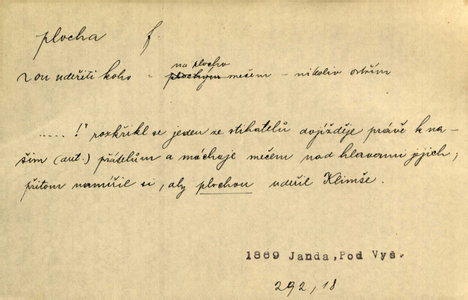 plocha f.
-ou udeřiti koho - na plocho
plochým mečem - nikoliv ostřím
.....!" rozkřikl se jeden ze stihatelů dojížděje právě k na-
šim (aut.) přátelům a máchaje mečem nad hlavami jejich,
přitom namířil si, aby plochou udeřil Klimše.
1869 Janda, Pod Vyš.
292, 18